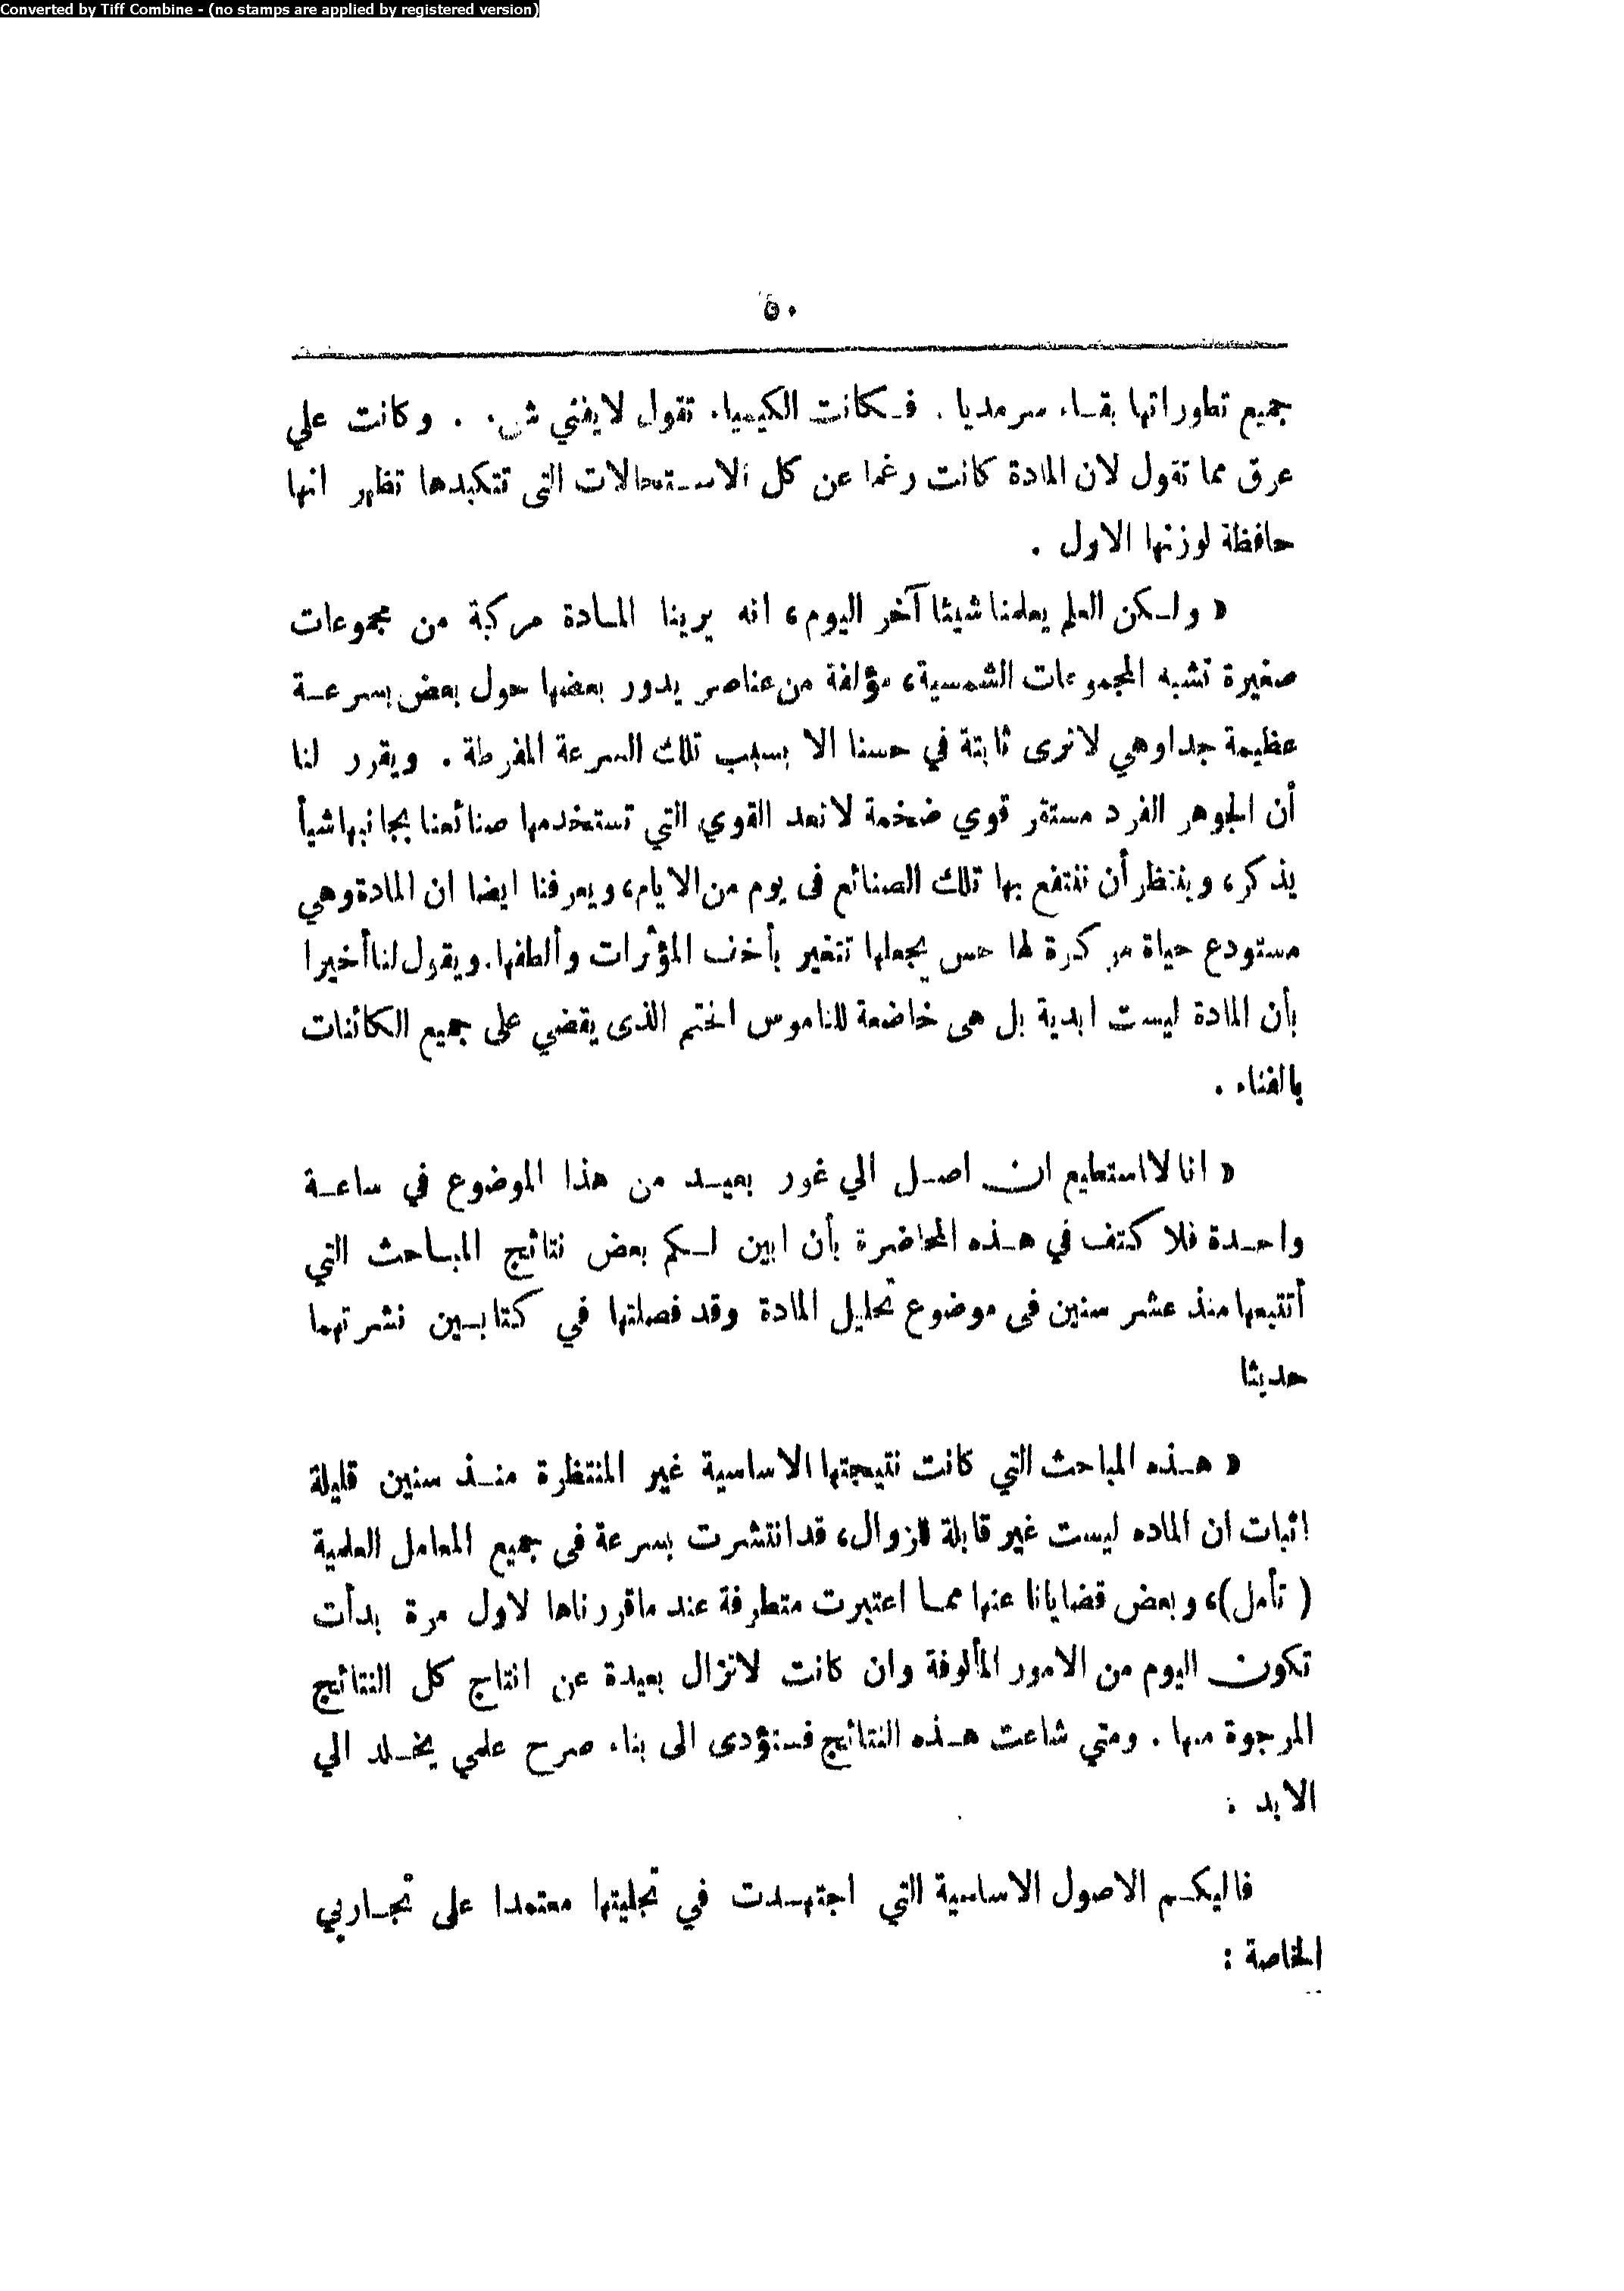 Converted by Tiff Combine - (no stamps are applied by registered version)
٥٠
جميع تطوراتها بقاء سرمديا . فكانت الكيمياء تقول لايفني شيء . وكانت علي
عرق مما تقول لان المادة كانت رغما عن كل الاستحالات التى تتكبدها تظهر انها
حافظة لوزنها الاول .
« ولكن العلم يعلمنا شيئا آخر اليوم، انه يرينا المادة مركبة من مجموعات
صغيرة تشبه المجموعات الشمسية، مؤلفة من عناصر يدور بعضها حول بعض بسرعة
عظيمة جدا وهي لا نرى ثابتة في حسنا الا بسبب تلك السرعة المفرطة . ويقرر لنا
أن الجوهر الفرد مستقر قوي ضخمة لا نعد القوي التي تستخدمها صنائعنا بجانبها شيأ
يذكر، وينتظر أن تنتفع بها تلك الصنائع فى يوم من الايام، ويعرفنا ايضا ان المادة وهي
مستودع حياة مركزة لها حس يجعلها تتغير بأخف المؤثرات وألطفها. ويقول لنا أخيرا
بأن المادة ليست ابدية بل هى خاضعة للناموس الختم الذى يقضي على جميع الكائنات
بالفناء .
« انا لا استطيع ان اصل الي غور بعيد من هذا الموضوع في ساعة
واحدة فلا كتف في هذه المحاضرة بأن ابين لكم بعض نتائج المباحث التي
أتتبعها منذ عشر سنين فى موضوع تحليل المادة وقد فصلتها في كتابين نشرتهما
حديثا
« هذه المباحث التي كانت نتيجتها الاساسية غير المنتظرة منذ سنين قليلة
اثبات ان الماده ليست غير قابلة للزوال، قد انتشرت بسرعة فى جميع المعامل العلمية
( تأمل )، وبعض قضايانا عنها مما اعتبرت متطرفة عند ماقررناها لاول مرة بدأت
تكون اليوم من الامور المألوفة وان كانت لاتزال بعيدة عن انتاج كل النتائج
المرجوة منها . ومتي شاعت هذه النتائج فستؤدى الى بناء صرح علمي يخلد الي
الابد :
فاليكم الاصول الاساسية التي اجتهدت في تجليتها معتمدا على تجاربي
الخاصة :